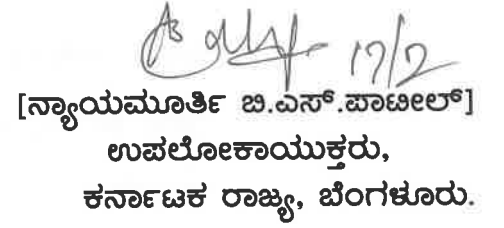 17/2
[ನ್ಯಾಯಮೂರ್ತಿ ಬಿ.ಎಸ್.ಪಾಟೀಲ್]
ಉಪಲೋಕಾಯುಕ್ತರು,
ಕರ್ನಾಟಕ ರಾಜ್ಯ, ಬೆಂಗಳೂರು.